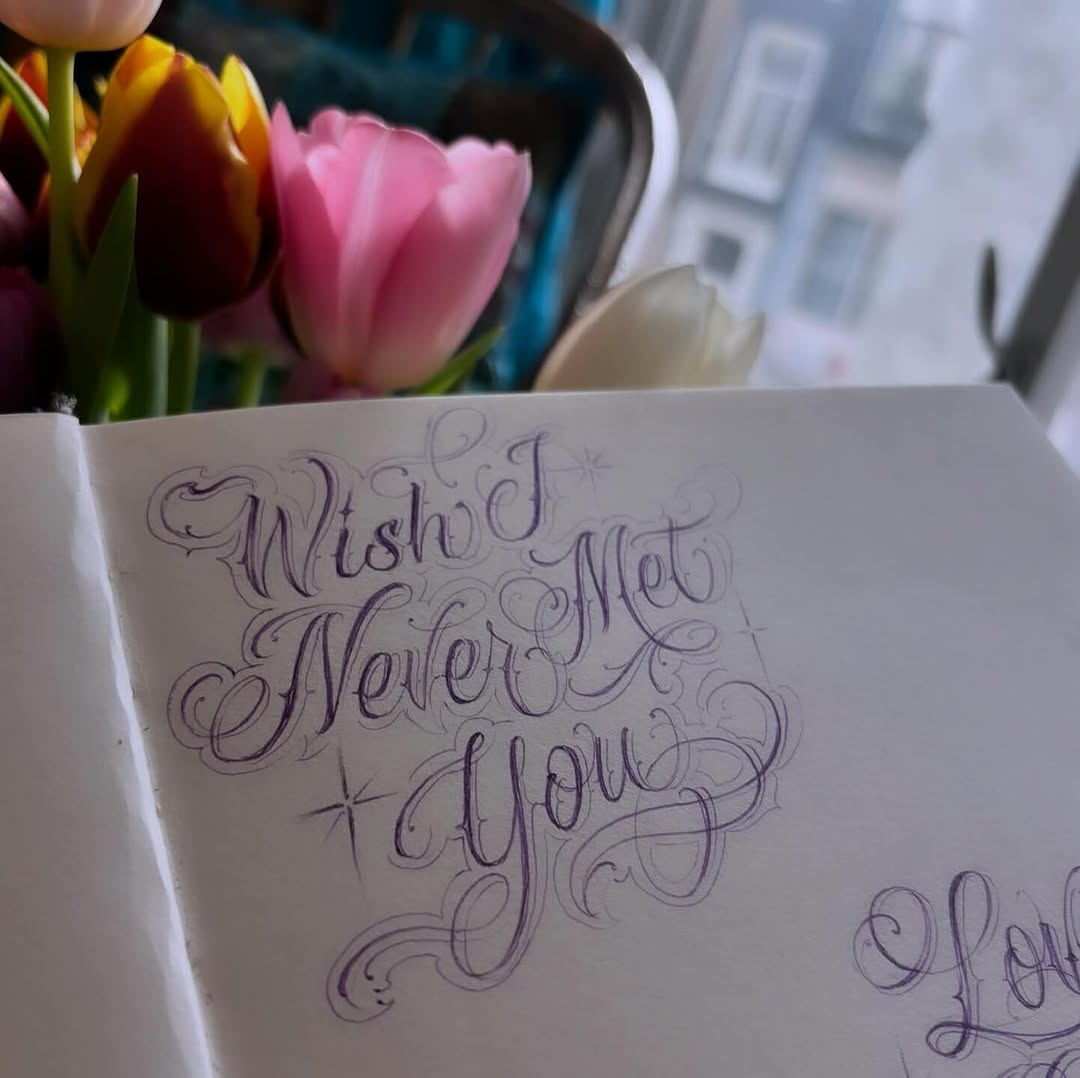 Wish I
Never Met
You